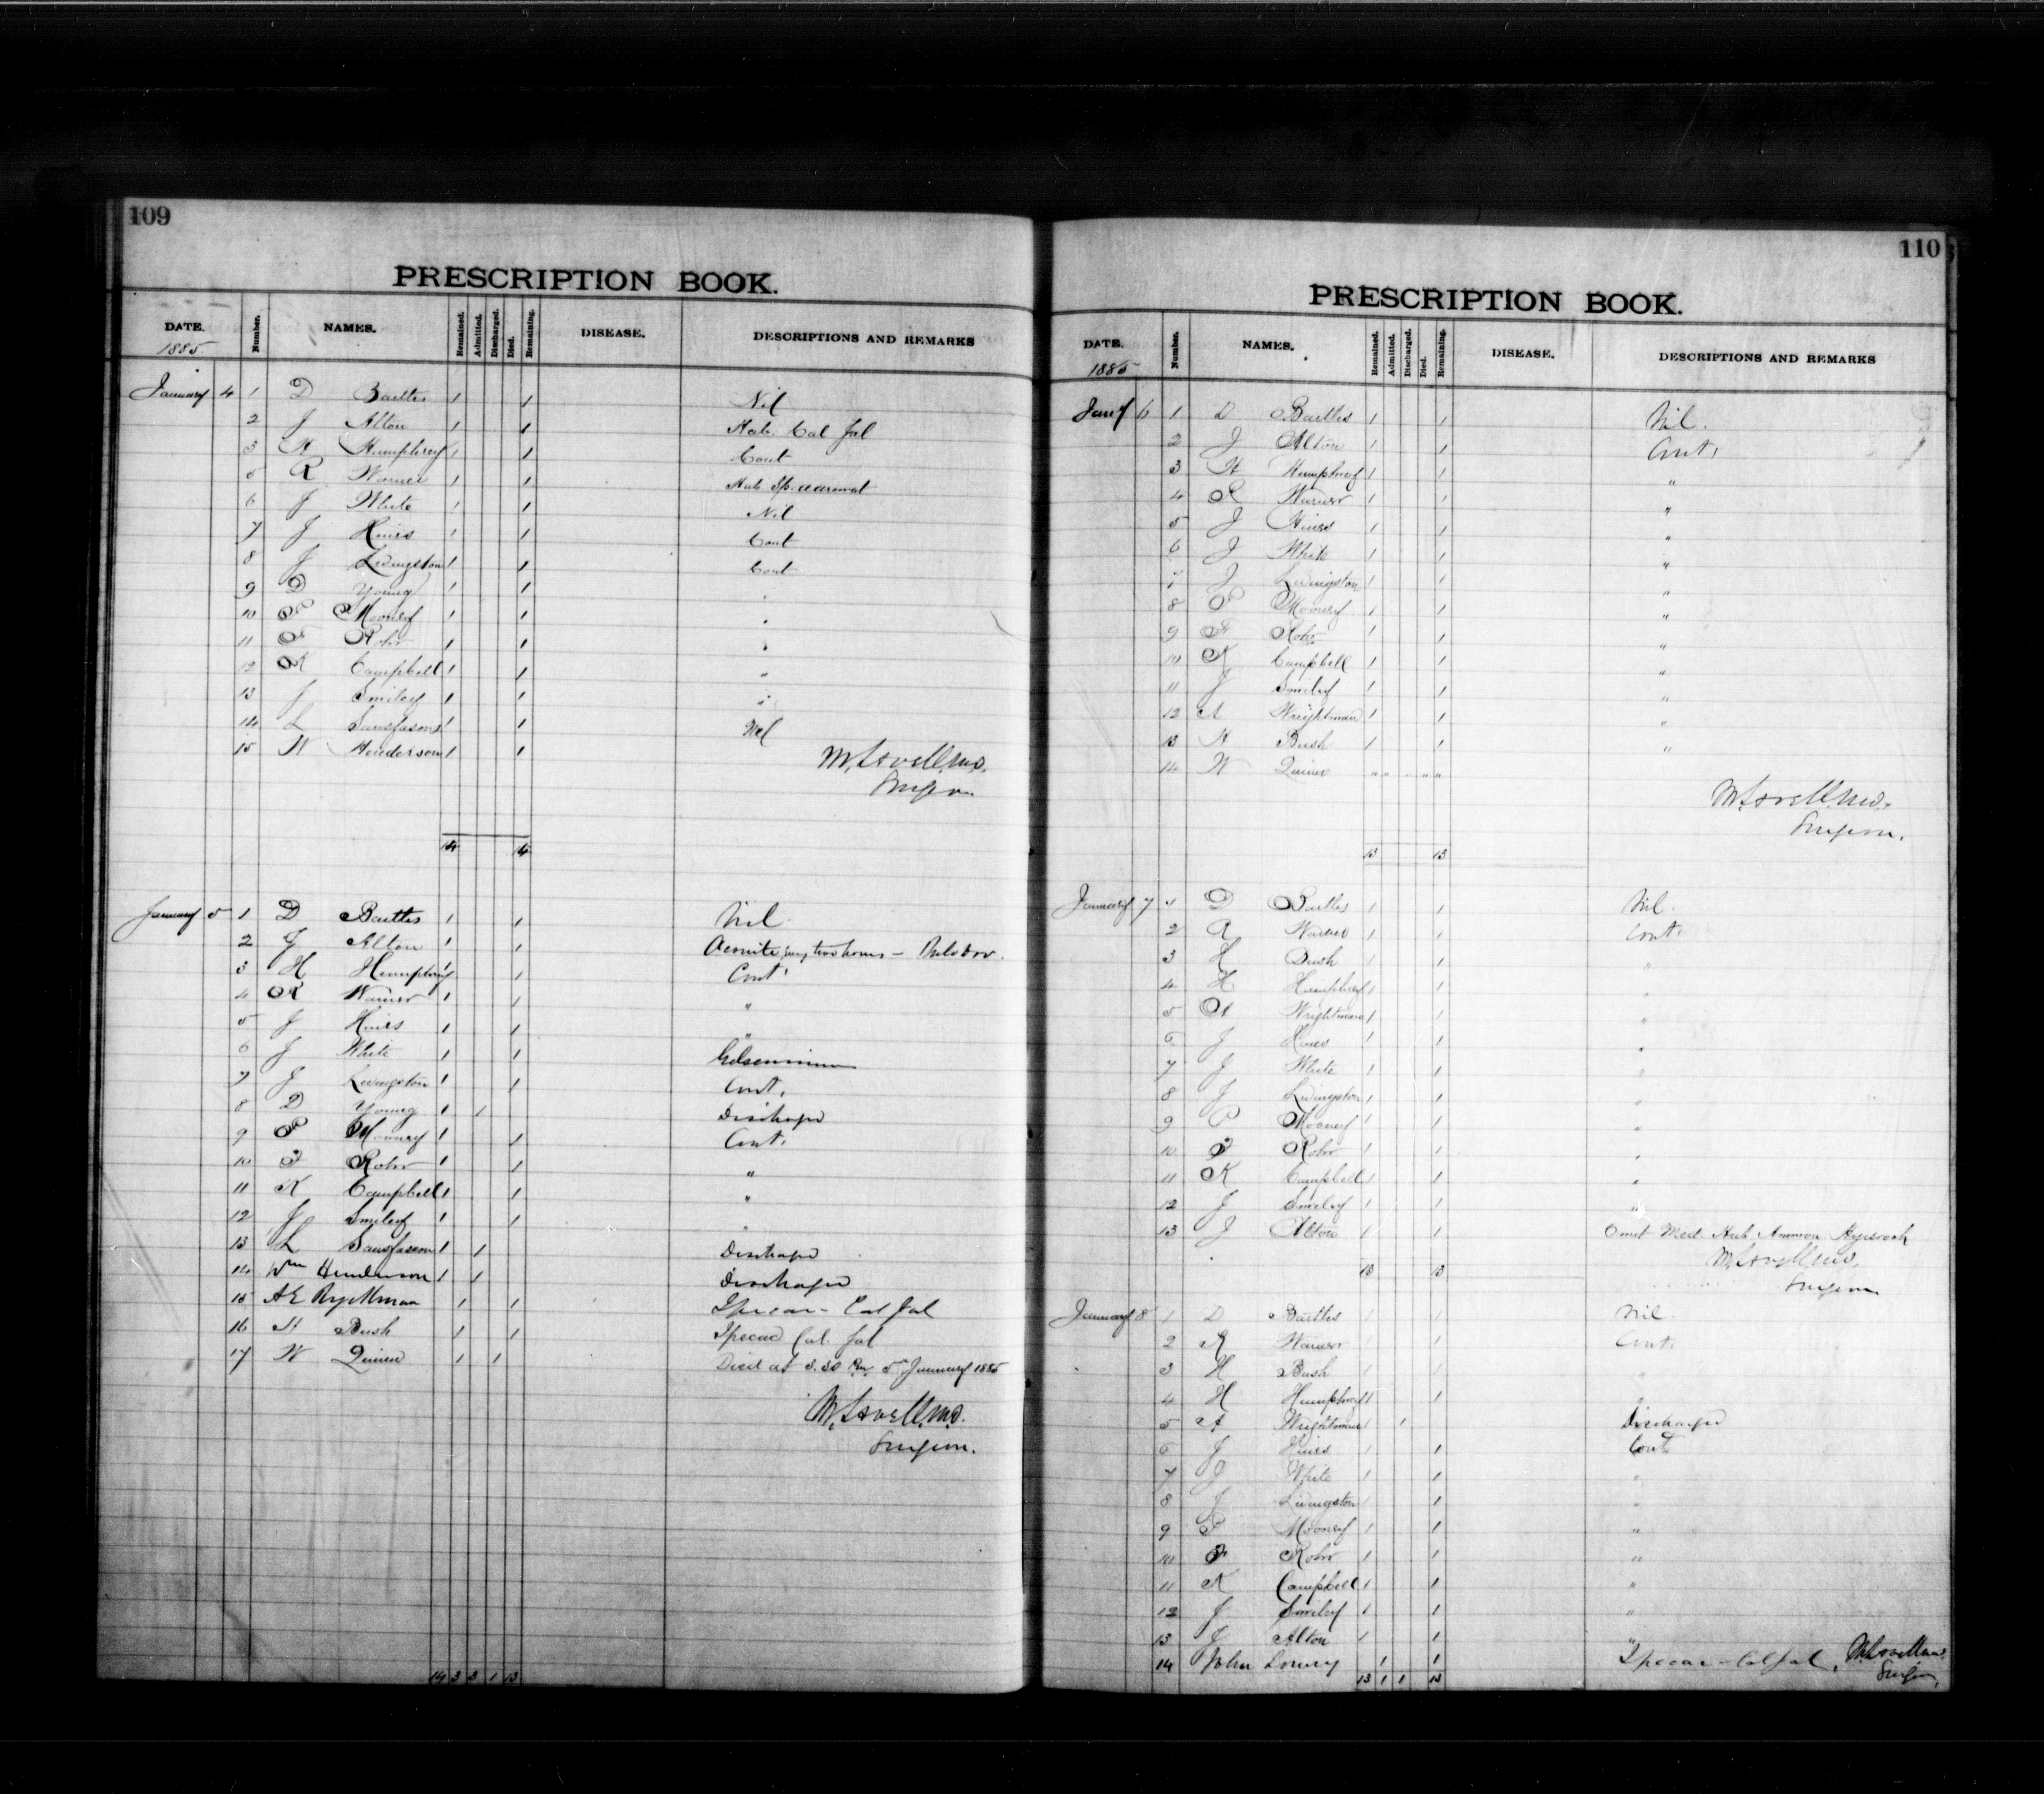 109
PRESCRIPTION BOOK.
DATE. Number. NAMES. Remained. Admitted. Discharged. Died. Remaining. DISEASE. DESCRIPTIONS AND REMARKS
1885
January 4 1 D Bartles 1 1 Nil
2 J Alton 1 1 Hab. Cal Jal
3 H Humphrey 1 1 Cont
5 R Warner 1 1 Hab. Sp.
6 J White 1 1 Nil
7 J Hairs 1 1 Cont
8 J Livingston 1 1 Cont
9 D Young 1 1 "
10 P Mooney 1 1 "
11 F Rohr 1 1 "
12 K Campbell 1 1 "
13 J Smiley 1 1 "
14 L Sansfason 1 1 Nil
15 W Henderson 1 1
M. Lovell M.D.
Surgeon
14 14
January 5 1 D Bartles 1 1 Nil
2 J Alton 1 1 Aconite every two hours —
3 H Humphrey 1 1 Cont
4 R Warner 1 1 "
5 J Hairs 1 1 "
6 J White 1 1 Gelseminum
7 J Livingston 1 1 Cont.
8 D Young 1 1 Discharged
9 P Mooney 1 1 Cont.
10 F Rohr 1 1 "
11 K Campbell 1 1 "
12 J Smiley 1 1 "
13 L Sansfason 1 1 Discharged
14 Wm Henderson 1 1 Discharged
15 A E Ryckman 1 1 Ipecac - Cal Jal
16 H Bush 1 1 Ipecac Cal. Jal
17 W Quinn 1 1 Died at 3.30 Pm 5th January 1885
M. Lovell M.D.
Surgeon.
14 3 3 1 13
110
PRESCRIPTION BOOK.
DATE. Number. NAMES. Remained. Admitted. Discharged. Died. Remaining. DISEASE. DESCRIPTIONS AND REMARKS
1885
Jany 6 1 D Bartles 1 1 Nil.
2 J Alton 1 1 Cont.
3 H Humphrey 1 1 "
4 R Warner 1 1 "
5 J Hairs 1 1 "
6 J White 1 1 "
7 J Livingston 1 1 "
8 P Mooney 1 1 "
9 F Rohr 1 1 "
10 K Campbell 1 1 "
11 J Smiley 1 1 "
12 A Wrightman 1 1 "
13 H Bush 1 1 "
14 W Quinn " " " " "
M. Lovell M.D.
Surgeon.
13 13
January 7 1 D Bartles 1 1 Nil.
2 R Warner 1 1 Cont.
3 H Bush 1 1 "
4 H Humphrey 1 1 "
5 A Wrightman 1 1 "
6 J Hairs 1 1 "
7 J White 1 1 "
8 J Livingston 1 1 "
9 P Mooney 1 1 "
10 F Rohr 1 1 "
11 K Campbell 1 1 "
12 J Smiley 1 1 "
13 J Alton 1 1 Omit Med. Hab. Ammon
M. Lovell M.D.
13 13
Surgeon
January 8 1 D Bartles 1 1 Nil
2 R Warner 1 1 Cont.
3 H Bush 1 1 "
4 H Humphrey 1 1 "
5 A Wrightman 1 1 Discharged
6 J Hairs 1 1 Cont
7 J White 1 1 "
8 J Livingston 1 1 "
9 P Mooney 1 1 "
10 F Rohr 1 1 "
11 K Campbell 1 1 "
12 J Smiley 1 1 "
13 J Alton 1 1 "
14 John Lowry 1 1 Ipecac - Cal Jal. M. Lovell M.D.
13 1 1 13 Surgeon.